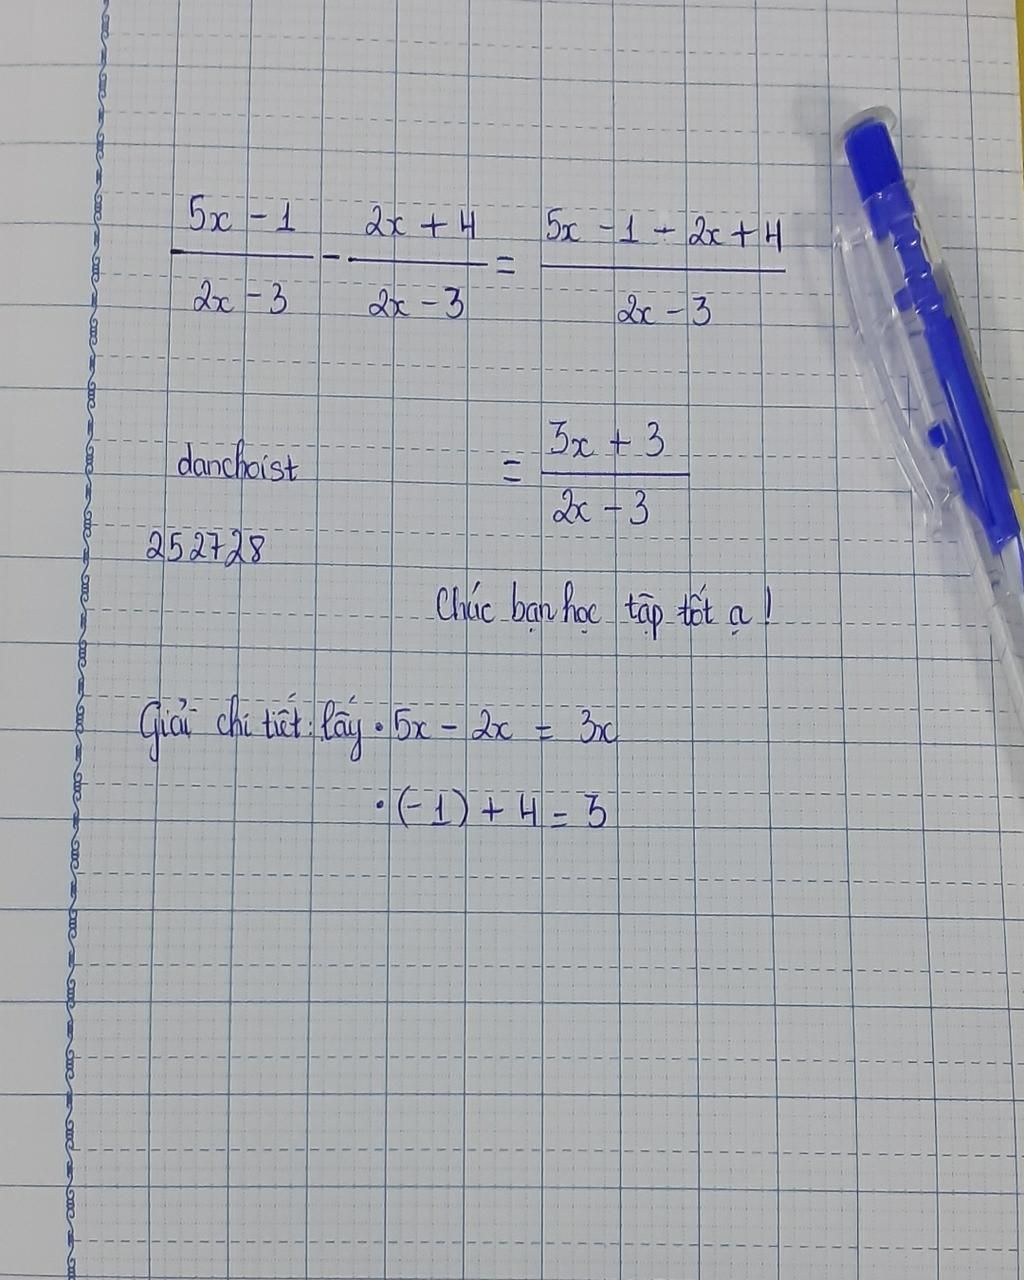 5x - 1 / 2x - 3 - 2x + 4 / 2x - 3 = 5x - 1 - 2x + 4 / 2x - 3
= 3x + 3 / 2x - 3
danchoist
252728
Chúc bạn học tập tốt ạ!
Giải chi tiết: lấy • 5x - 2x = 3x
• (-1) + 4 = 3